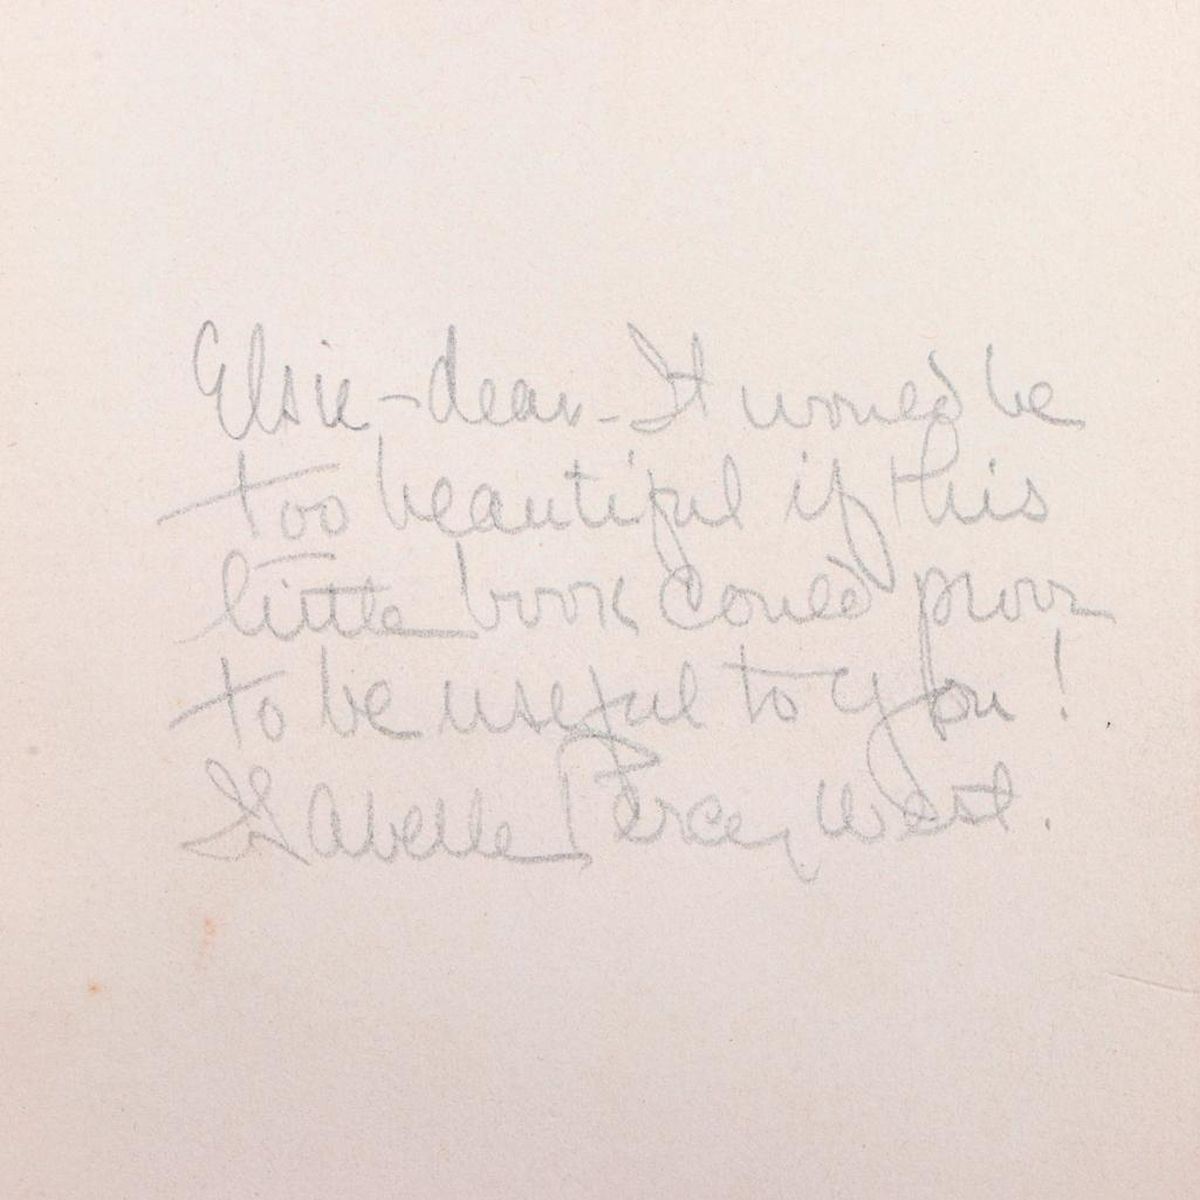 Elsie - dear - It would be
too beautiful if this
little book could prove
to be useful to you!
Isabelle Percey West.